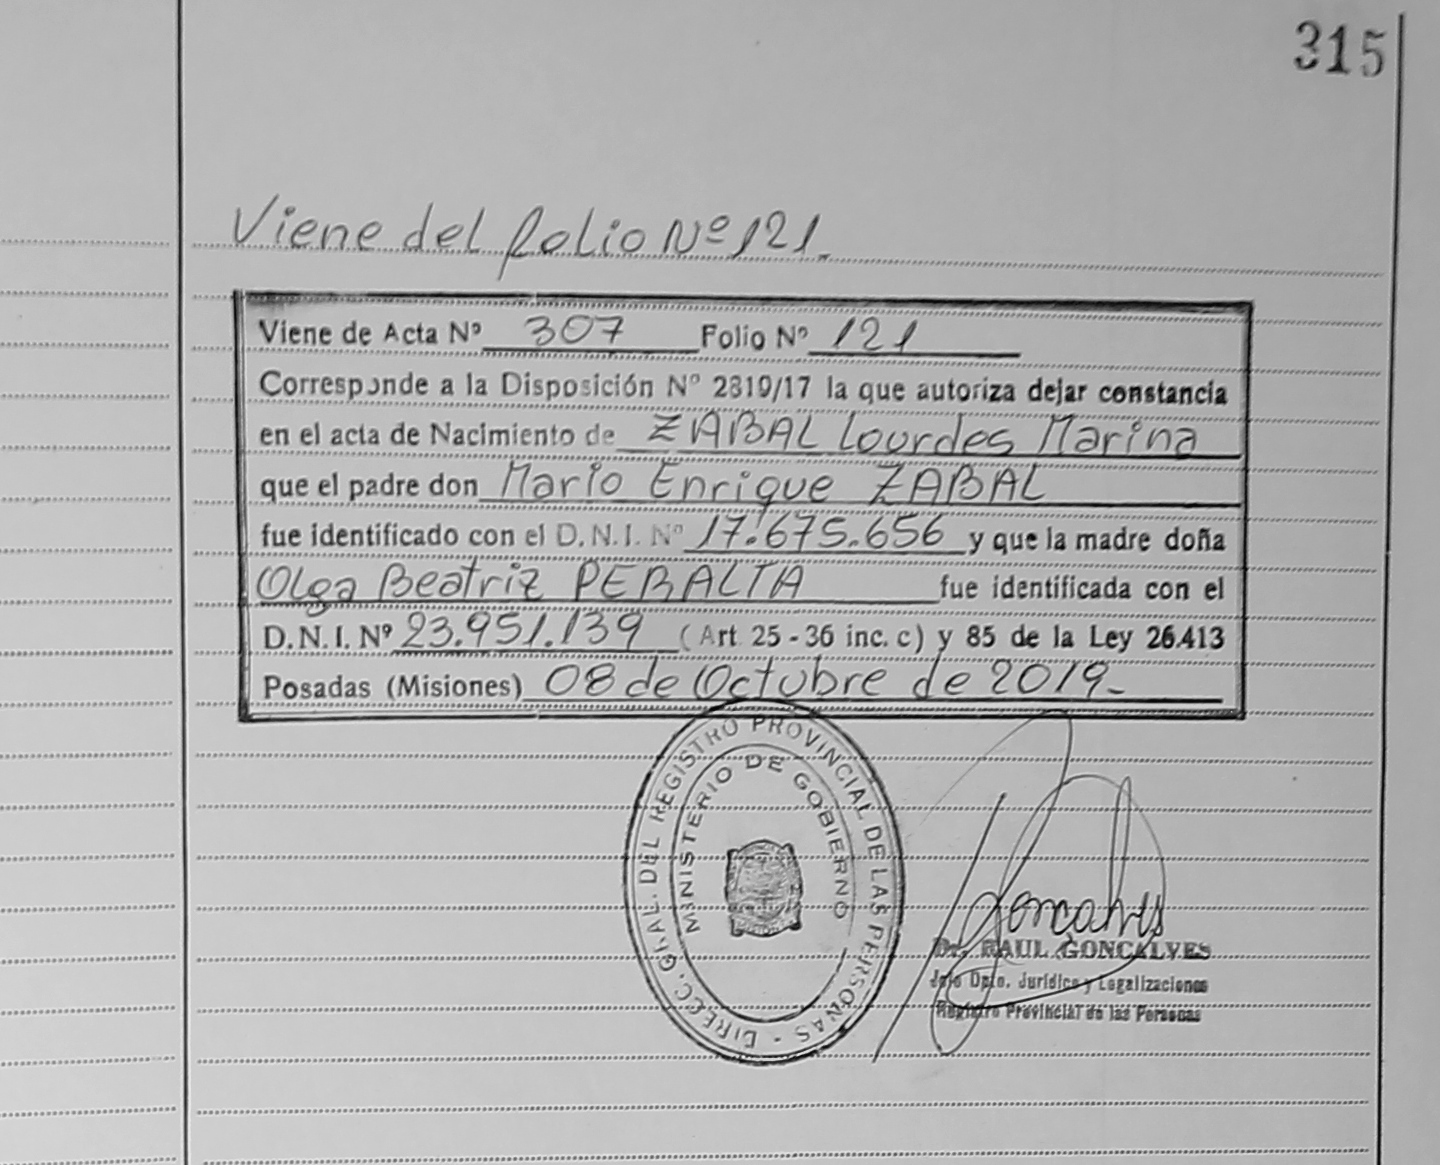 315
Viene del folio Nº 121.
Viene de Acta Nº 307 Folio Nº 121
Corresponde a la Disposición Nº 2819/17 la que autoriza dejar constancia
en el acta de Nacimiento de ZABAL Lourdes Marina
que el padre don Mario Enrique ZABAL
fue identificado con el D.N.I. Nº 17.675.656 y que la madre doña
Olga Beatriz PERALTA fue identificada con el
D.N.I. Nº 23.951.139 (Art 25 - 36 inc. c) y 85 de la Ley 26.413
Posadas (Misiones) 08 de Octubre de 2019.-
DIRECC. GRAL. DEL REGISTRO PROVINCIAL DE LAS PERSONAS -
MINISTERIO DE GOBIERNO
Goncalves
Dr. RAUL GONCALVES
Jefe Dpto. Jurídico y Legalizaciones
Registro Provincial de las Personas